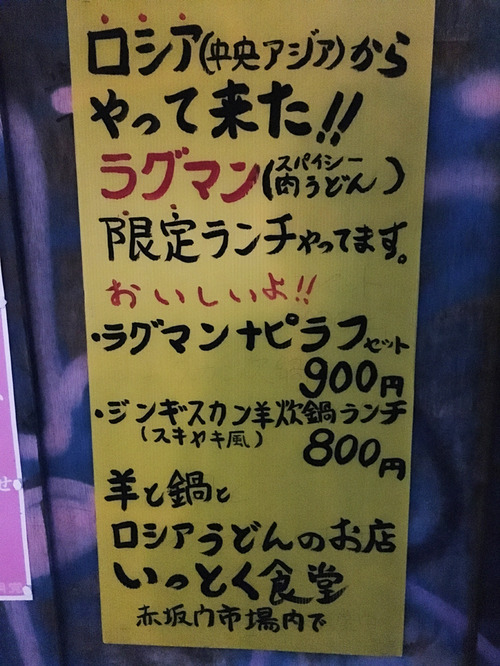 ロシア(中央アジア)から
やって来た!!
ラグマン(スパイシー肉うどん)
限定ランチやってます。
おいしいよ!!
・ラグマン+ピラフセット
900円
・ジンギスカン羊炊鍋ランチ
(スキヤキ風)
800円
羊と鍋と
ロシアうどんのお店
いっとく食堂
赤坂門市場内で
せ